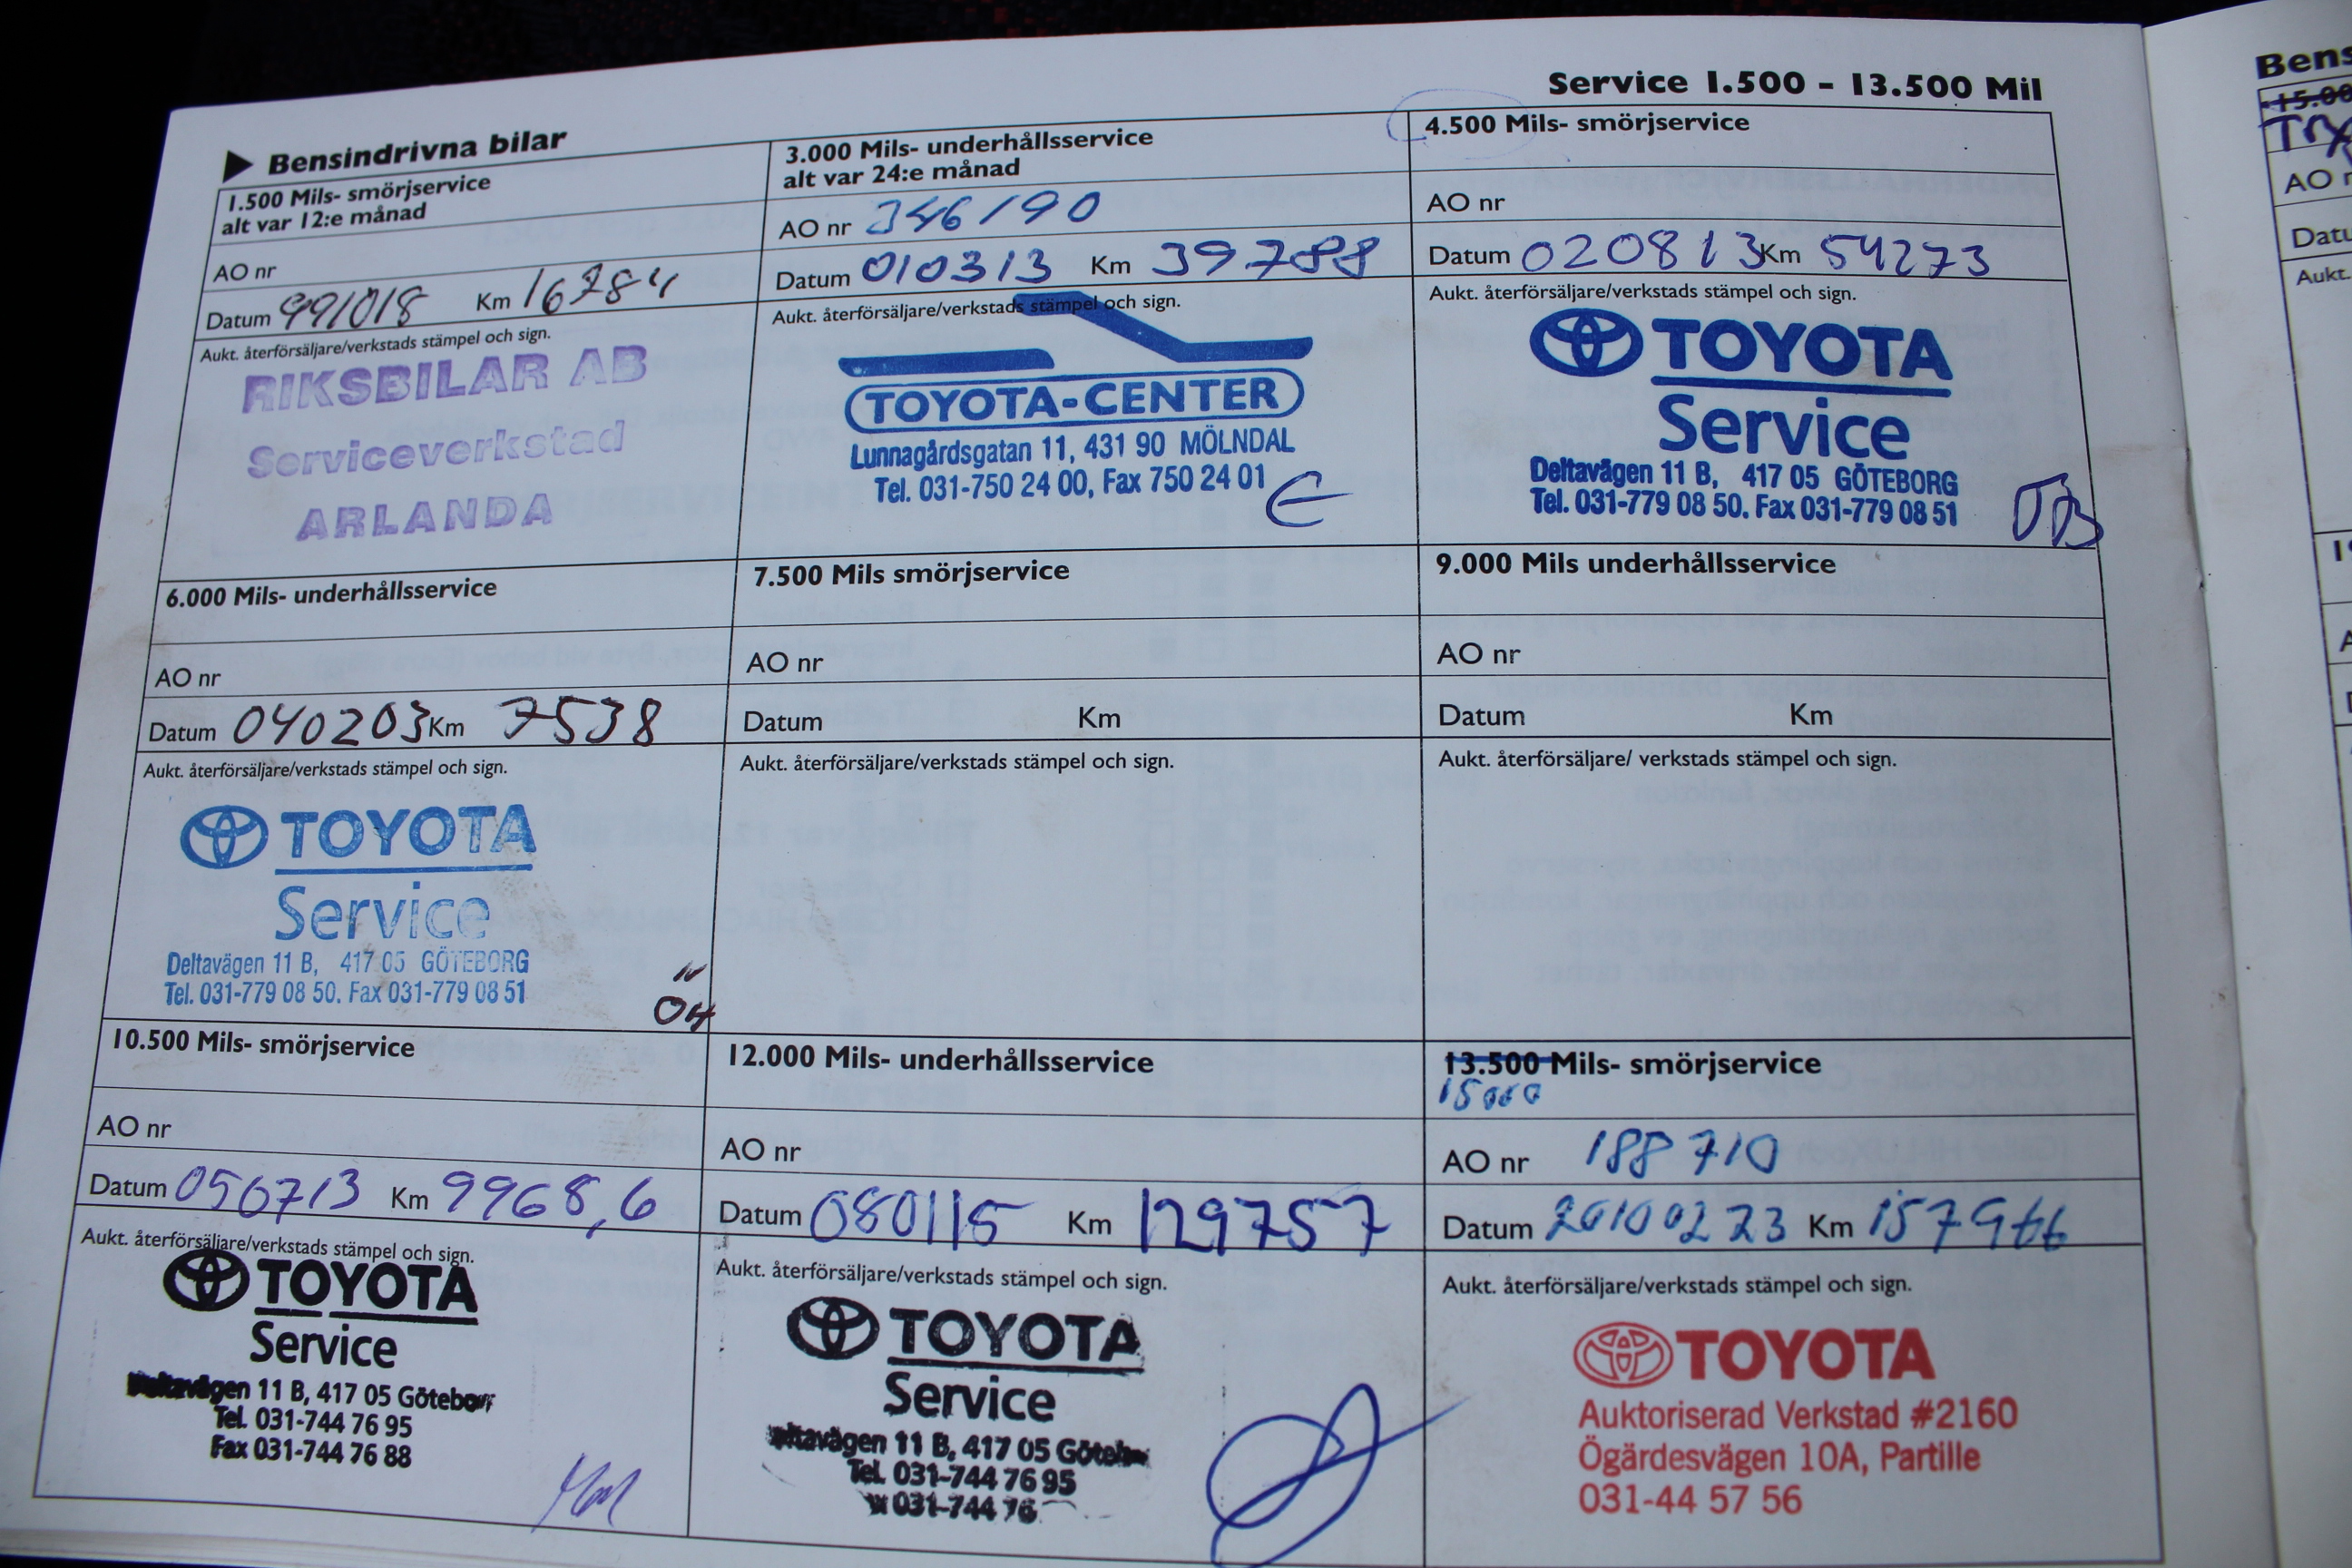 Service 1.500 - 13.500 Mil
▶ Bensindrivna bilar
1.500 Mils- smörjservice
alt var 12:e månad
AO nr
Datum 991018 Km 16784
Aukt. återförsäljare/verkstads stämpel och sign.
RIKSBILAR AB
Serviceverkstad
ARLANDA
3.000 Mils- underhållsservice
alt var 24:e månad
AO nr 346190
Datum 010313 Km 39788
Aukt. återförsäljare/verkstads stämpel och sign.
TOYOTA-CENTER
Lunnagårdsgatan 11, 431 90 MÖLNDAL
Tel. 031-750 24 00, Fax 750 24 01
4.500 Mils- smörjservice
AO nr
Datum 020813 Km 54273
Aukt. återförsäljare/verkstads stämpel och sign.
TOYOTA
Service
Deltavägen 11 B, 417 05 GÖTEBORG
Tel. 031-779 08 50. Fax 031-779 08 51
6.000 Mils- underhållsservice
AO nr
Datum 040203 Km 7538
Aukt. återförsäljare/verkstads stämpel och sign.
TOYOTA
Service
Deltavägen 11 B, 417 05 GÖTEBORG
Tel. 031-779 08 50. Fax 031-779 08 51
7.500 Mils smörjservice
AO nr
Datum Km
Aukt. återförsäljare/verkstads stämpel och sign.
9.000 Mils underhållsservice
AO nr
Datum Km
Aukt. återförsäljare/ verkstads stämpel och sign.
10.500 Mils- smörjservice
AO nr
Datum 050713 Km 9968,6
Aukt. återförsäljare/verkstads stämpel och sign.
TOYOTA
Service
11 B, 417 05 Göteborg
Tel. 031-744 76 95
Fax 031-744 76 88
12.000 Mils- underhållsservice
AO nr
Datum 080115 Km 129757
Aukt. återförsäljare/verkstads stämpel och sign.
TOYOTA
Service
11 B, 417 05
Tel. 031-744 76 95
031-744 76
13.500 Mils- smörjservice
15000
AO nr 188710
Datum 20100223 Km 157966
Aukt. återförsäljare/verkstads stämpel och sign.
TOYOTA
Auktoriserad Verkstad #2160
Ögärdesvägen 10A, Partille
031-44 57 56
Bens
15.00
AO
Datu
Aukt.